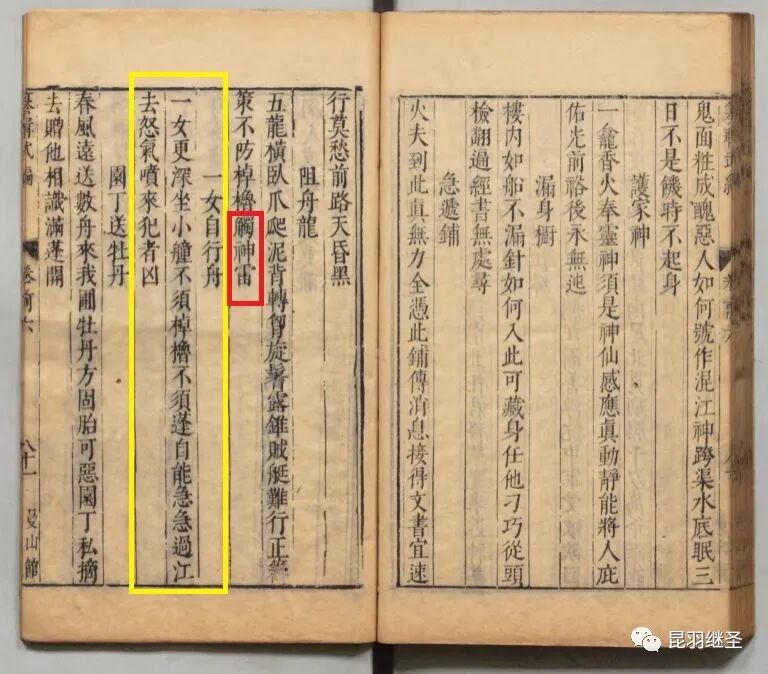 鬼面粧成醜惡人如何號作混江神跨渠水底眠三
日不是饑時不起身
護家神
一龕香火奉靈神須是神仙感應眞動靜能將人庇
佑光前裕後永無迍
漏身櫥
樓內如船不漏針如何入此可藏身任他刁巧從頭
檢翻遍經書無處尋
急遞鋪
火夫到此眞無力全憑此鋪傳消息接得文書宜速
行莫愁前路天昏黑
阻舟龍
五龍橫臥爪爬泥背轉智旋鬐露錐賊艇難行正籌
策不防棹櫓觸神雷
一女自行舟
一女更深坐小艟不須棹櫓不須蓬自能急急過江
去怒氣噴來犯者凶
園丁送牡丹
春風遠送數舟來我圃牡丹方固胎可惡園丁私摘
去贈他相識滿蓬開
武編
卷前六
八十一
曼山館
昆羽继圣